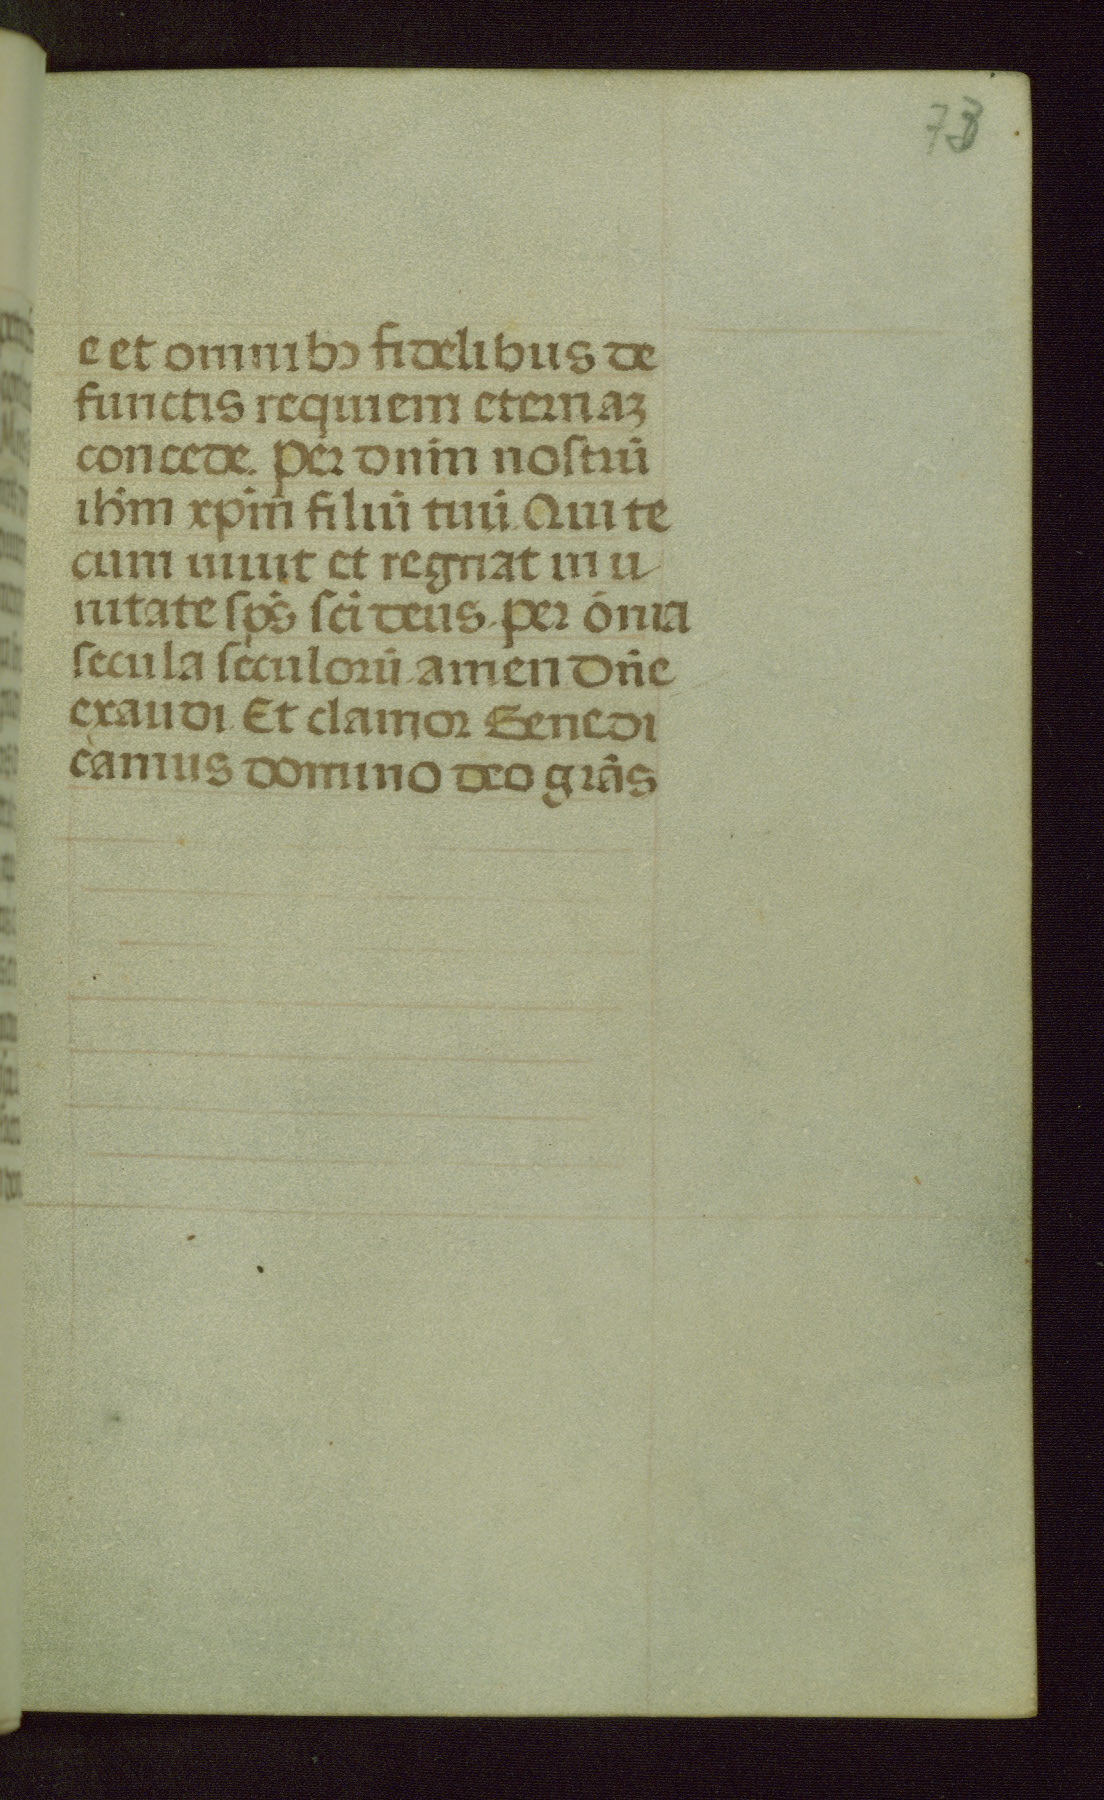 73
e et omnibꝫ fidelibus de
functis requiem eternaꝫ
concede. Per dnm̄ nostrū
ihm̄ xpm̄ filiū tuū. Qui te
cum uiuit et regnat in u
nitate sps̄ sci̅ deus. per ōnia
secula seculorū. amen Dn̄e
exaudi. Et clamor Benedi
camus domino deo grās